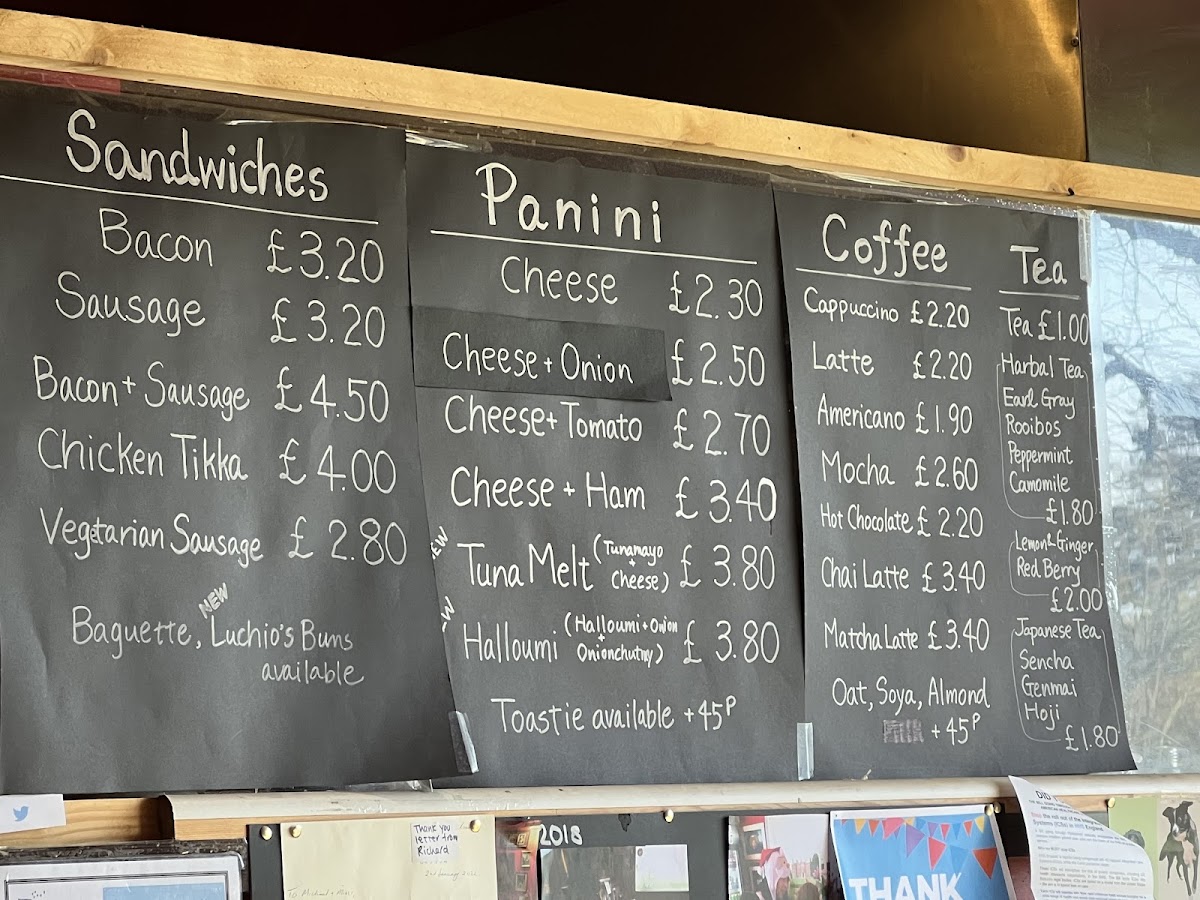 Sandwiches
Bacon £3.20
Sausage £3.20
Bacon + Sausage £4.50
Chicken Tikka £4.00
Vegetarian Sausage £2.80
NEW
Baguette, Luchio's Buns
available
Panini
Cheese £2.30
Cheese + Onion £2.50
Cheese + Tomato £2.70
Cheese + Ham £3.40
NEW
Tuna Melt (Tunamayo + Cheese) £3.80
Halloumi (Halloumi + Onion + Onionchutny) £3.80
Toastie available +45P
Coffee
Cappuccino £2.20
Latte £2.20
Americano £1.90
Mocha £2.60
Hot Chocolate £2.20
Chai Latte £3.40
Matcha Latte £3.40
Oat, Soya, Almond
+45P
Tea
Tea £1.00
Harbal Tea
Earl Gray
Rooibos
Peppermint
Camomile
£1.80
Lemon & Ginger
Red Berry
£2.00
Japanese Tea
Sencha
Genmai
Hoji
£1.80
Thank you
letter from
Richard
2018
THANK